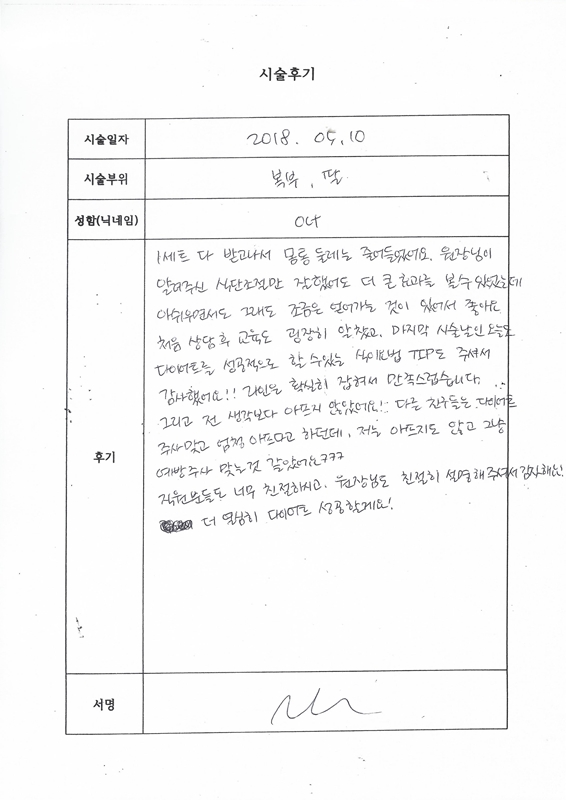 시술후기
시술일자 2018. 05. 10
시술부위 복부, 팔
성함(닉네임)
후기
1세트 다 받고나서 몽통 둘레는 줄어들었어요. 원장님이
알려주신 식단조절만 잘했어도 더 큰 효과를 볼수 있었는데
아쉬우면서도 그래도 조금은 얻어가는 것이 있어서 좋아요
처음 상담후 교육도 굉장히 알찼고, 마지막 시술날인 오늘도
다이어트를 성공적으로 할 수있는 식이요법 TIP도 주셔서
감사했어요!! 라인은 확실히 잡혀서 만족스럽습니다.
그리고 전 생각보다 아프지 않았어요!! 다른 친구들은 다이어트
주사맞고 엄청 아프다고 하던데, 저는 아프지도 않고 그냥
예방주사 맞는것 같았어요ㅋㅋㅋ
직원분들도 너무 친절하시고, 원장님도 친절히 설명해주셔서 감사해요!
더 열심히 다이어트 성공할게요!
서명